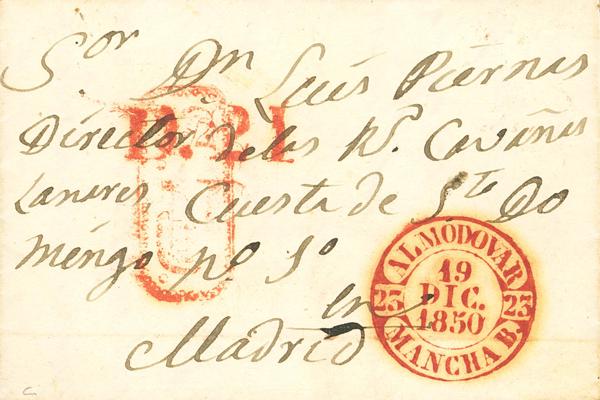 Sor Dn Luis Piernas
Director de las Rs. Cavañas
Lanares, Cuesta de Sto Do
mingo no 10
en
Madrid
ALMODOVAR
19
DIC.
1850
23 23
MANCHA B.